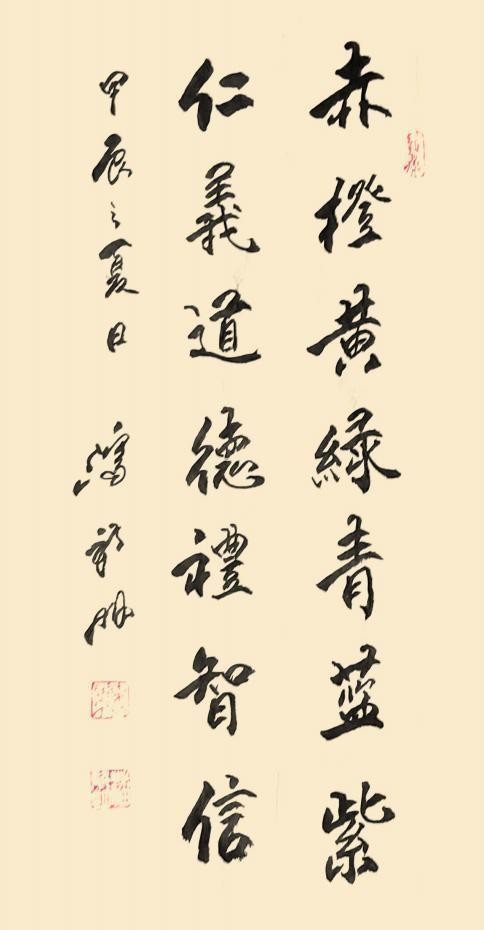 赤橙黄緑青藍紫
仁義道德禮智信
甲辰之夏日